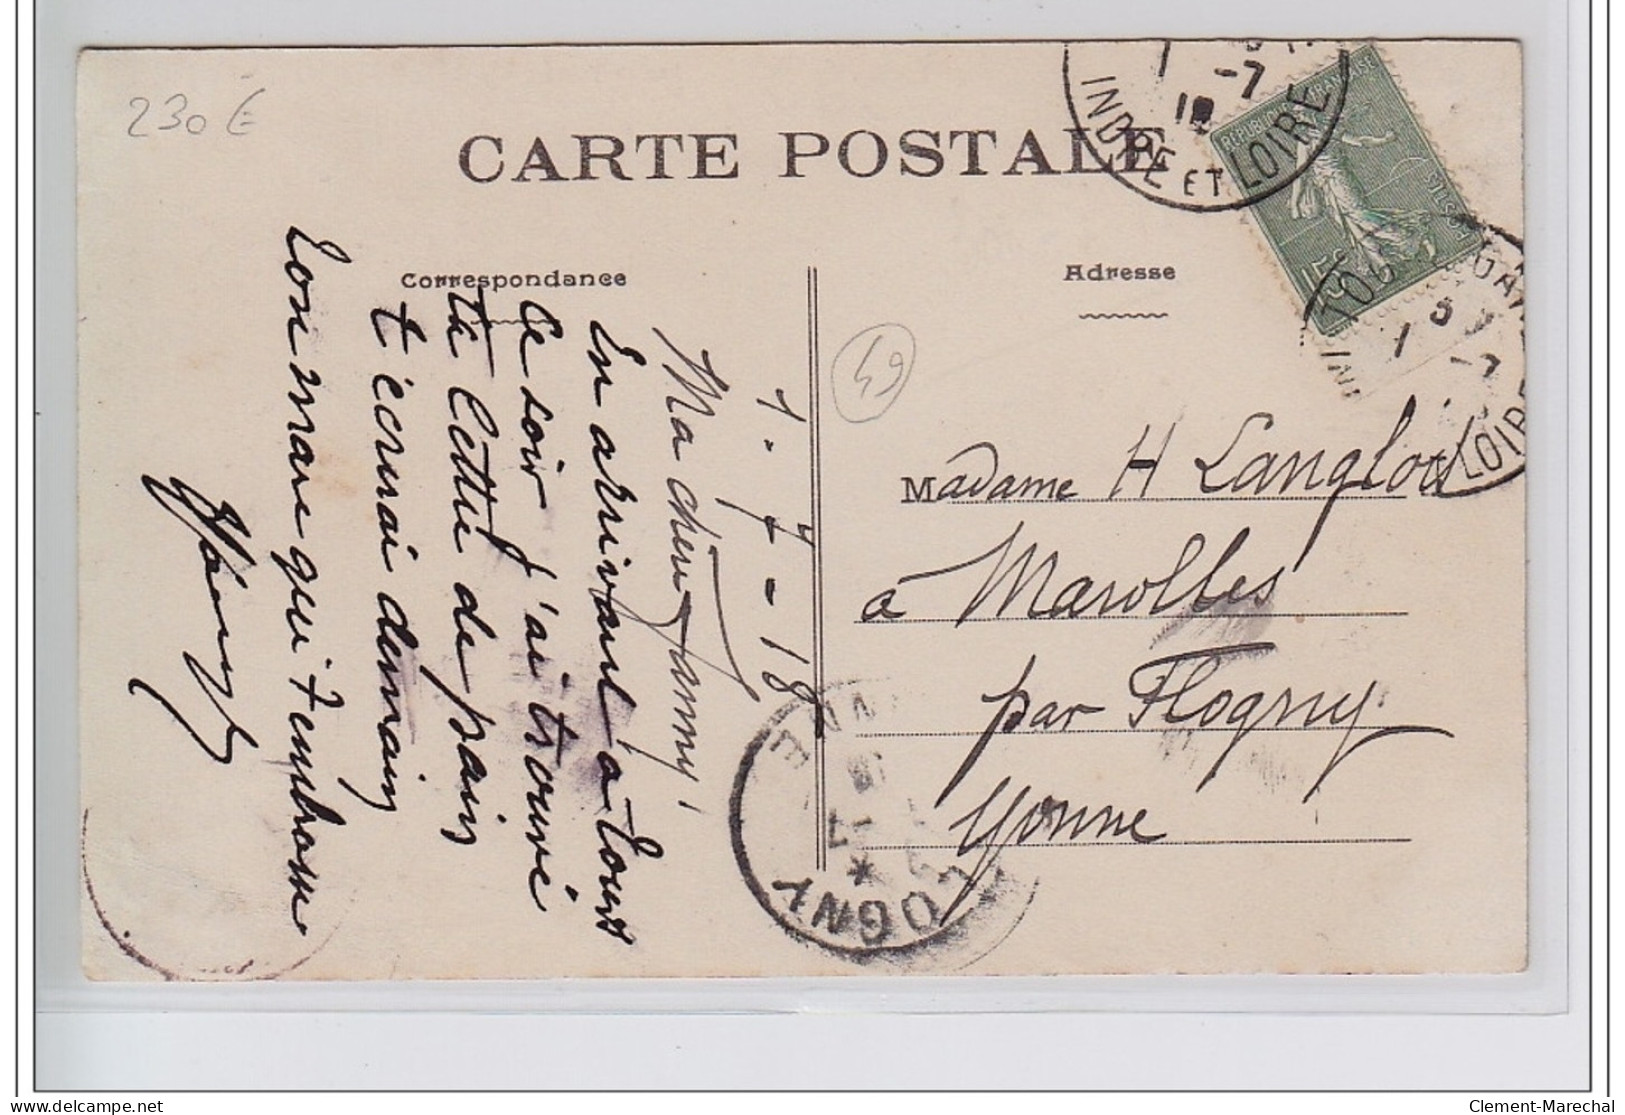 230 €
CARTE POSTALE
Correspondance
Adresse
1-7-18
Ma chère Fanny !
En arrivant à Tours
ce soir j'ai trouvé
ta lettre de
t'écrirai demain
Ton mari qui t'embrasse
Henry
49
Madame H Langlois
à Marolles
par Flogny
Yonne
REPUBLIQUE FRANÇAISE
POSTES
15c
INDRE ET LOIRE
-7
18
TOURS GARE
LOIRE
FLOGNY
YONNE
delcampe.net
Clement-Marechal